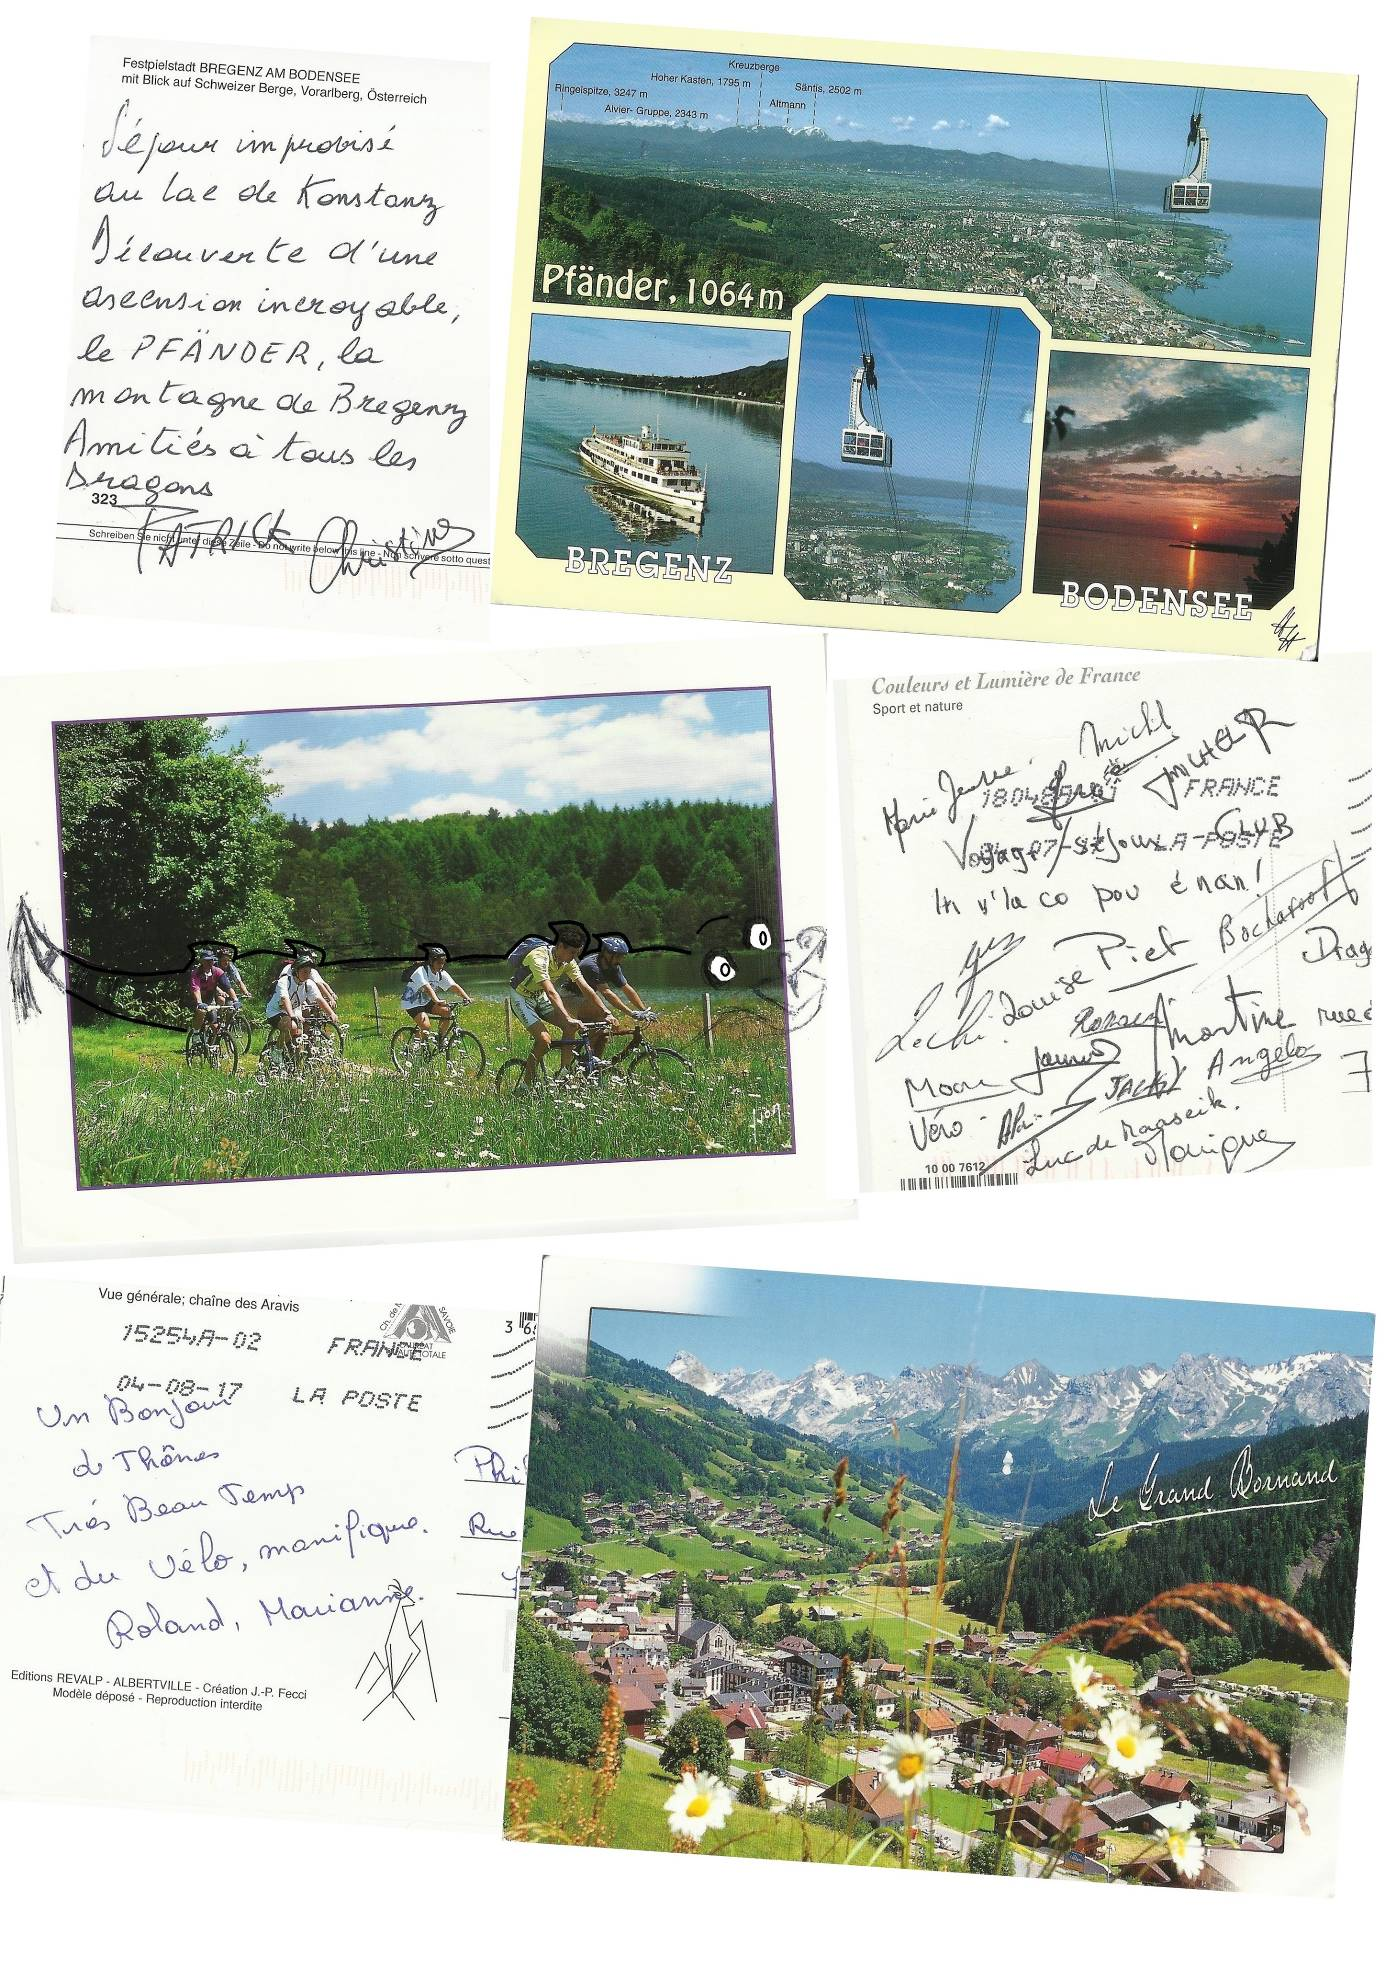 Festpielstadt BREGENZ AM BODENSEE
mit Blick auf Schweizer Berge, Vorarlberg, Österreich
Séjour improvisé
au lac de Konstanz
Découverte d'une
ascension incroyable,
le PFÄNDER, la
montagne de Bregenz
Amitiés à tous les
Dragons
323
PATRICK Christine
Schreiben Sie nicht unter diese Zeile - Do not write below this line - Non scrivere sotto quest
Kreuzberge
Hoher Kasten, 1795 m
Säntis, 2502 m
Ringelspitze, 3247 m
Altmann
Alvier- Gruppe, 2343 m
Pfänder, 1064m
BREGENZ
BODENSEE
Couleurs et Lumière de France
Sport et nature
Michel
Marie Jeanne
MICHEL R
18048A FRANCE
Voyage / séjour CLUB
LA POSTE
In v'la co pou é nan!
Piet
Louise
Drag
Romain
Martine
rue
Angelo
Moon
JACKY
Véro
Luc de Maaseik.
Monique
10 00 7612
yvon
Vue générale; chaîne des Aravis
SAVOIE
15254A-02 FRANCE
04-08-17 LA POSTE
Un Bonjour
de Thônes
Très Beau Temp
et du Vélo, manifique.
Roland, Marianne.
Phi
Rue
Editions REVALP - ALBERTVILLE - Création J.-P. Fecci
Modèle déposé - Reproduction interdite
Le Grand Bornand